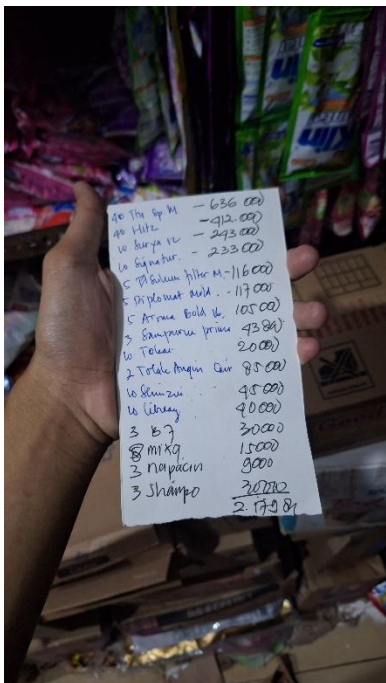 KIN
40 Th Sp M - 636 000
40 Hitz - 412.000
10 Surya 12 - 243 000
10 Signatur. - 233 000
5 filter M - 116 000
5 Diplomat mild. - 117 000
5 Aroma Bold 16 105 000
3 Sampurna prima 43 800
10 Tolak 20 000
2 Tolak Angin Cair 85 000
10 45 000
10 40 000
3 B7 30000
mixg 15000
3 napacin 9000
3 Shampo 30000
2.179 8